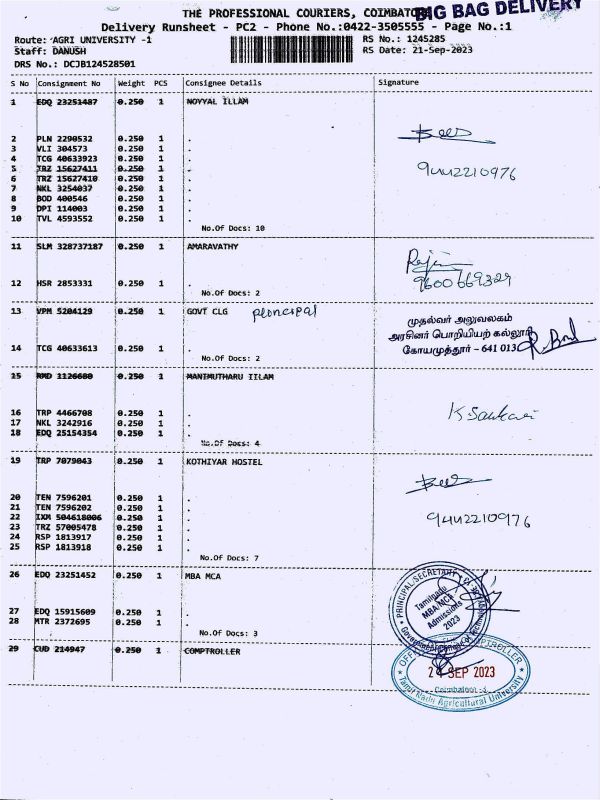 THE PROFESSIONAL COURIERS, COIMBATORE
BIG BAG DELIVERY
Delivery Runsheet - PC2 - Phone No.:0422-3505555 - Page No.:1
Route: AGRI UNIVERSITY -1 RS No.: 1245285
Staff: DANUSH RS Date: 21-Sep-2023
DRS No.: DCJB124528501
S No Consignment No Weight PCS Consignee Details Signature
1 EDQ 23251487 0.250 1 NOYYAL ILLAM
2 PLN 2290532 0.250 1 .
3 VLI 304573 0.250 1 .
4 TCG 40633923 0.250 1 .
5 TRZ 15627411 0.250 1 .
6 TRZ 15627410 0.250 1 .
7 NKL 3254037 0.250 1 .
8 BOD 400546 0.250 1 .
9 DPI 114003 0.250 1 .
10 TVL 4593552 0.250 1 .
9442210976
No.Of Docs: 10
11 SLM 328737187 0.250 1 AMARAVATHY
12 HSR 2853331 0.250 1 .
9600669329
No.Of Docs: 2
13 VPM 5204129 0.250 1 GOVT CLG
முதல்வர் அலுவலகம்
அரசினர் பொறியியற் கல்லூரி
கோயமுத்தூர் - 641 013
14 TCG 40633613 0.250 1 .
No.Of Docs: 2
15 RMD 1126680 0.250 1 MANIMUTHARU IILAM
16 TRP 4466708 0.250 1 .
17 NKL 3242916 0.250 1 .
18 EDQ 25154354 0.250 1 .
No.Of Docs: 4
19 TRP 7079043 0.250 1 KOTHIYAR HOSTEL
20 TEN 7596201 0.250 1 .
21 TEN 7596202 0.250 1 .
22 IXM 504618006 0.250 1 .
23 TRZ 57005478 0.250 1 .
24 RSP 1813917 0.250 1 .
25 RSP 1813918 0.250 1 .
9442210976
No.Of Docs: 7
26 EDQ 23251452 0.250 1 MBA MCA
27 EDQ 15915609 0.250 1 .
28 MTR 2372695 0.250 1 .
No.Of Docs: 3
Tamilnadu
MBA/MCA
Admissions
2023
29 CUD 214947 0.250 1 COMPTROLLER
24 SEP 2023
Tamil Nadu Agricultural University